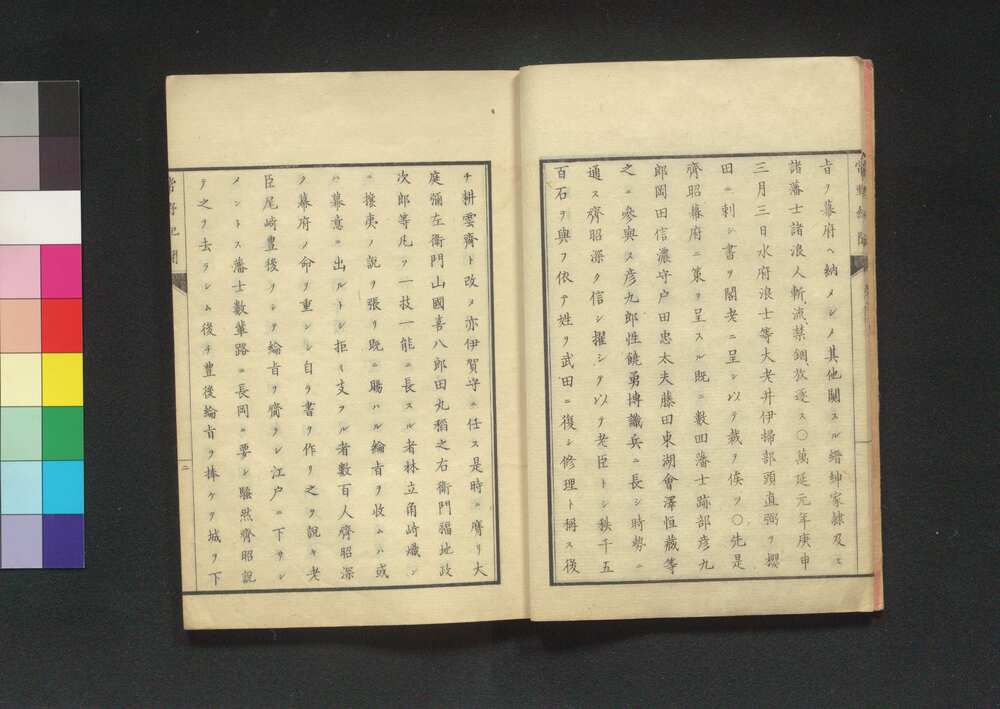 旨ヲ幕府ヘ納メシメ其他關スル縉紳家隷及ヒ
諸藩士諸浪人斬流禁錮放逐ス〇萬延元年庚申
三月三日水府浪士等大老井伊掃部頭直弼ヲ櫻
田ニ刺シ書ヲ閣老ニ呈シ以テ裁ヲ俟ツ〇先是
齊昭幕府ニ策ヲ呈スル既ニ數四藩士跡部彦九
郎岡田信濃守戸田忠太夫藤田東湖會澤恒蔵等
之ニ參與ス彦九郎性饒勇博識兵ニ長シ時勢ニ
通ス齊昭深ク信シ擢シヲ以テ老臣トシ秩千五
百石ヲ與フ依テ姓ヲ武田ニ復シ修理ト稱ス後
チ耕雲齊ト改メ亦伊賀守ニ任ス是時ニ膺リ大
庭彌左衞門山國喜八郎田丸稻之右衞門福地政
次郎等凡ソ一技一能ニ長スル者林立角崎熾ン
ニ攘夷ノ説ヲ張リ既ニ賜ハル綸旨ヲ收ムハ或
ハ幕意ニ出ルトシ拒ミ支フル者數百人齊昭深
ク幕府ノ命ヲ重シ自ラ書ヲ作リ之ヲ説キ老
臣尾崎豊後ヲシテ綸旨ヲ齎ラシ江戸ニ下ラシ
メントス藩士數輩路ニ長岡ニ要シ騷然齊昭説
テ之ヲ去ラシム後チ豊後綸旨ヲ捧ケテ城ヲ下
二